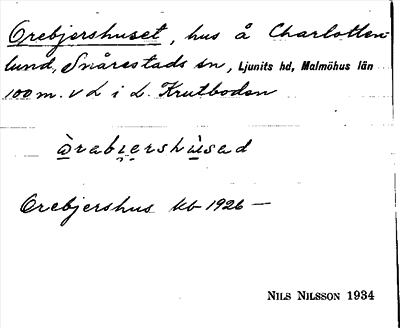 Orebjershuset, hus å Charlotten-
lund, Snårestads sn, Ljunits hd, Malmöhus län
100 m. v L i L. Krutboden
òrabi̯ersh ùsad
Orebjershus kb 1926 —
NILS NILSSON 1934